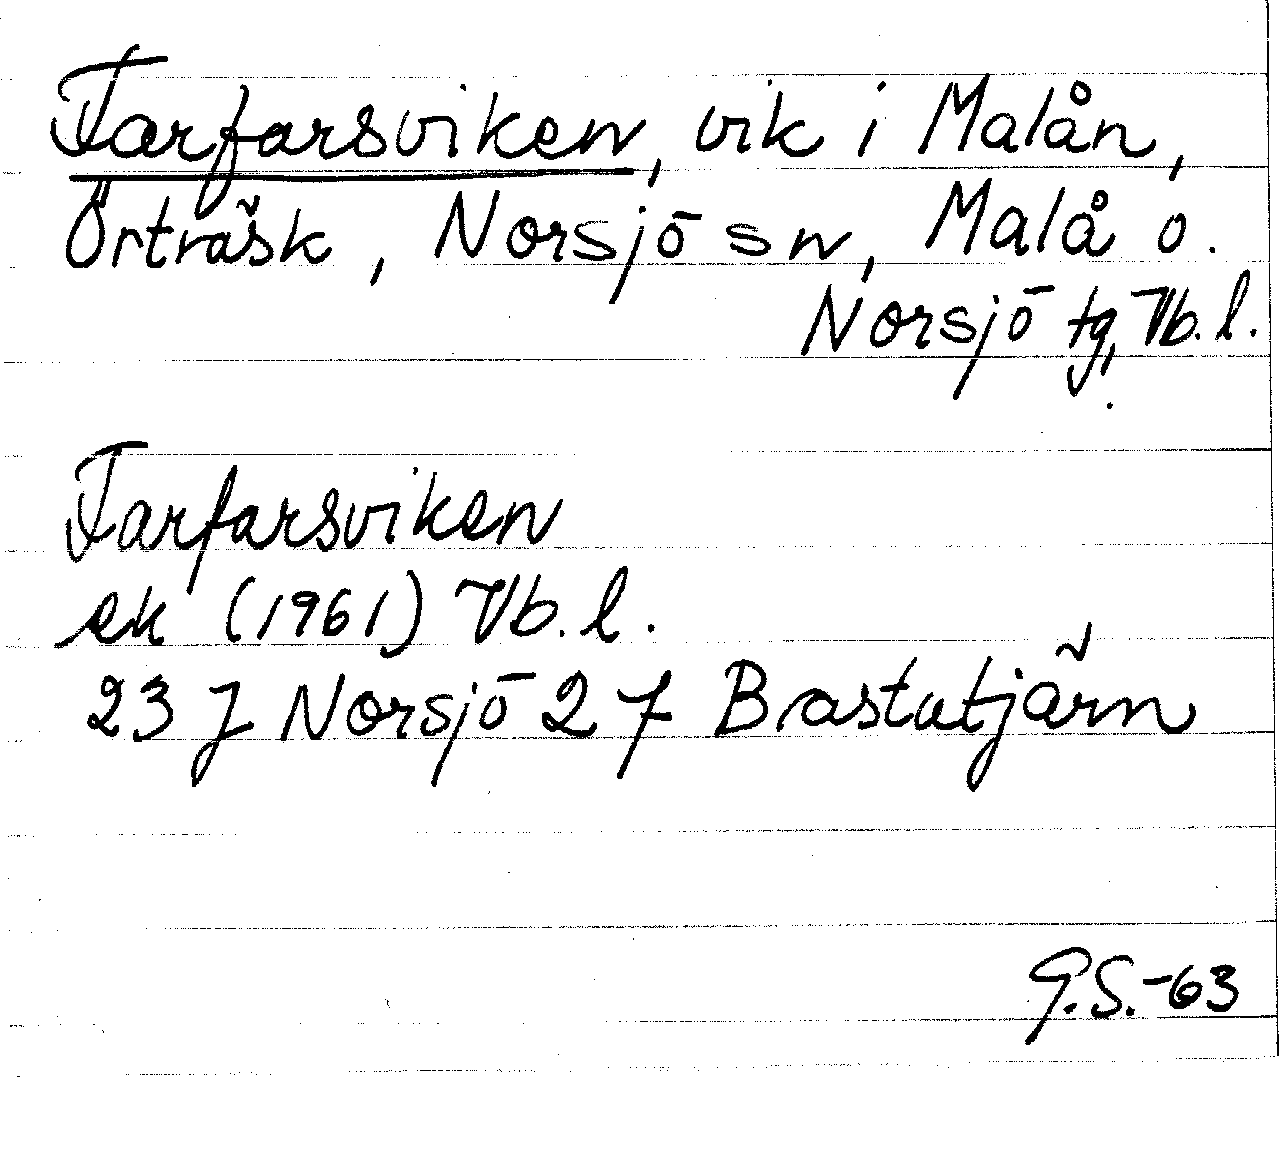 Farfarsviken, vik i Malån,
Örträsk, Norsjö sn, Malå o.
Norsjö tg, Vb. l.
Farfarsviken
ek (1961) Vb. l.
23 J Norsjö 2 f Bastutjärn
G.S.-63